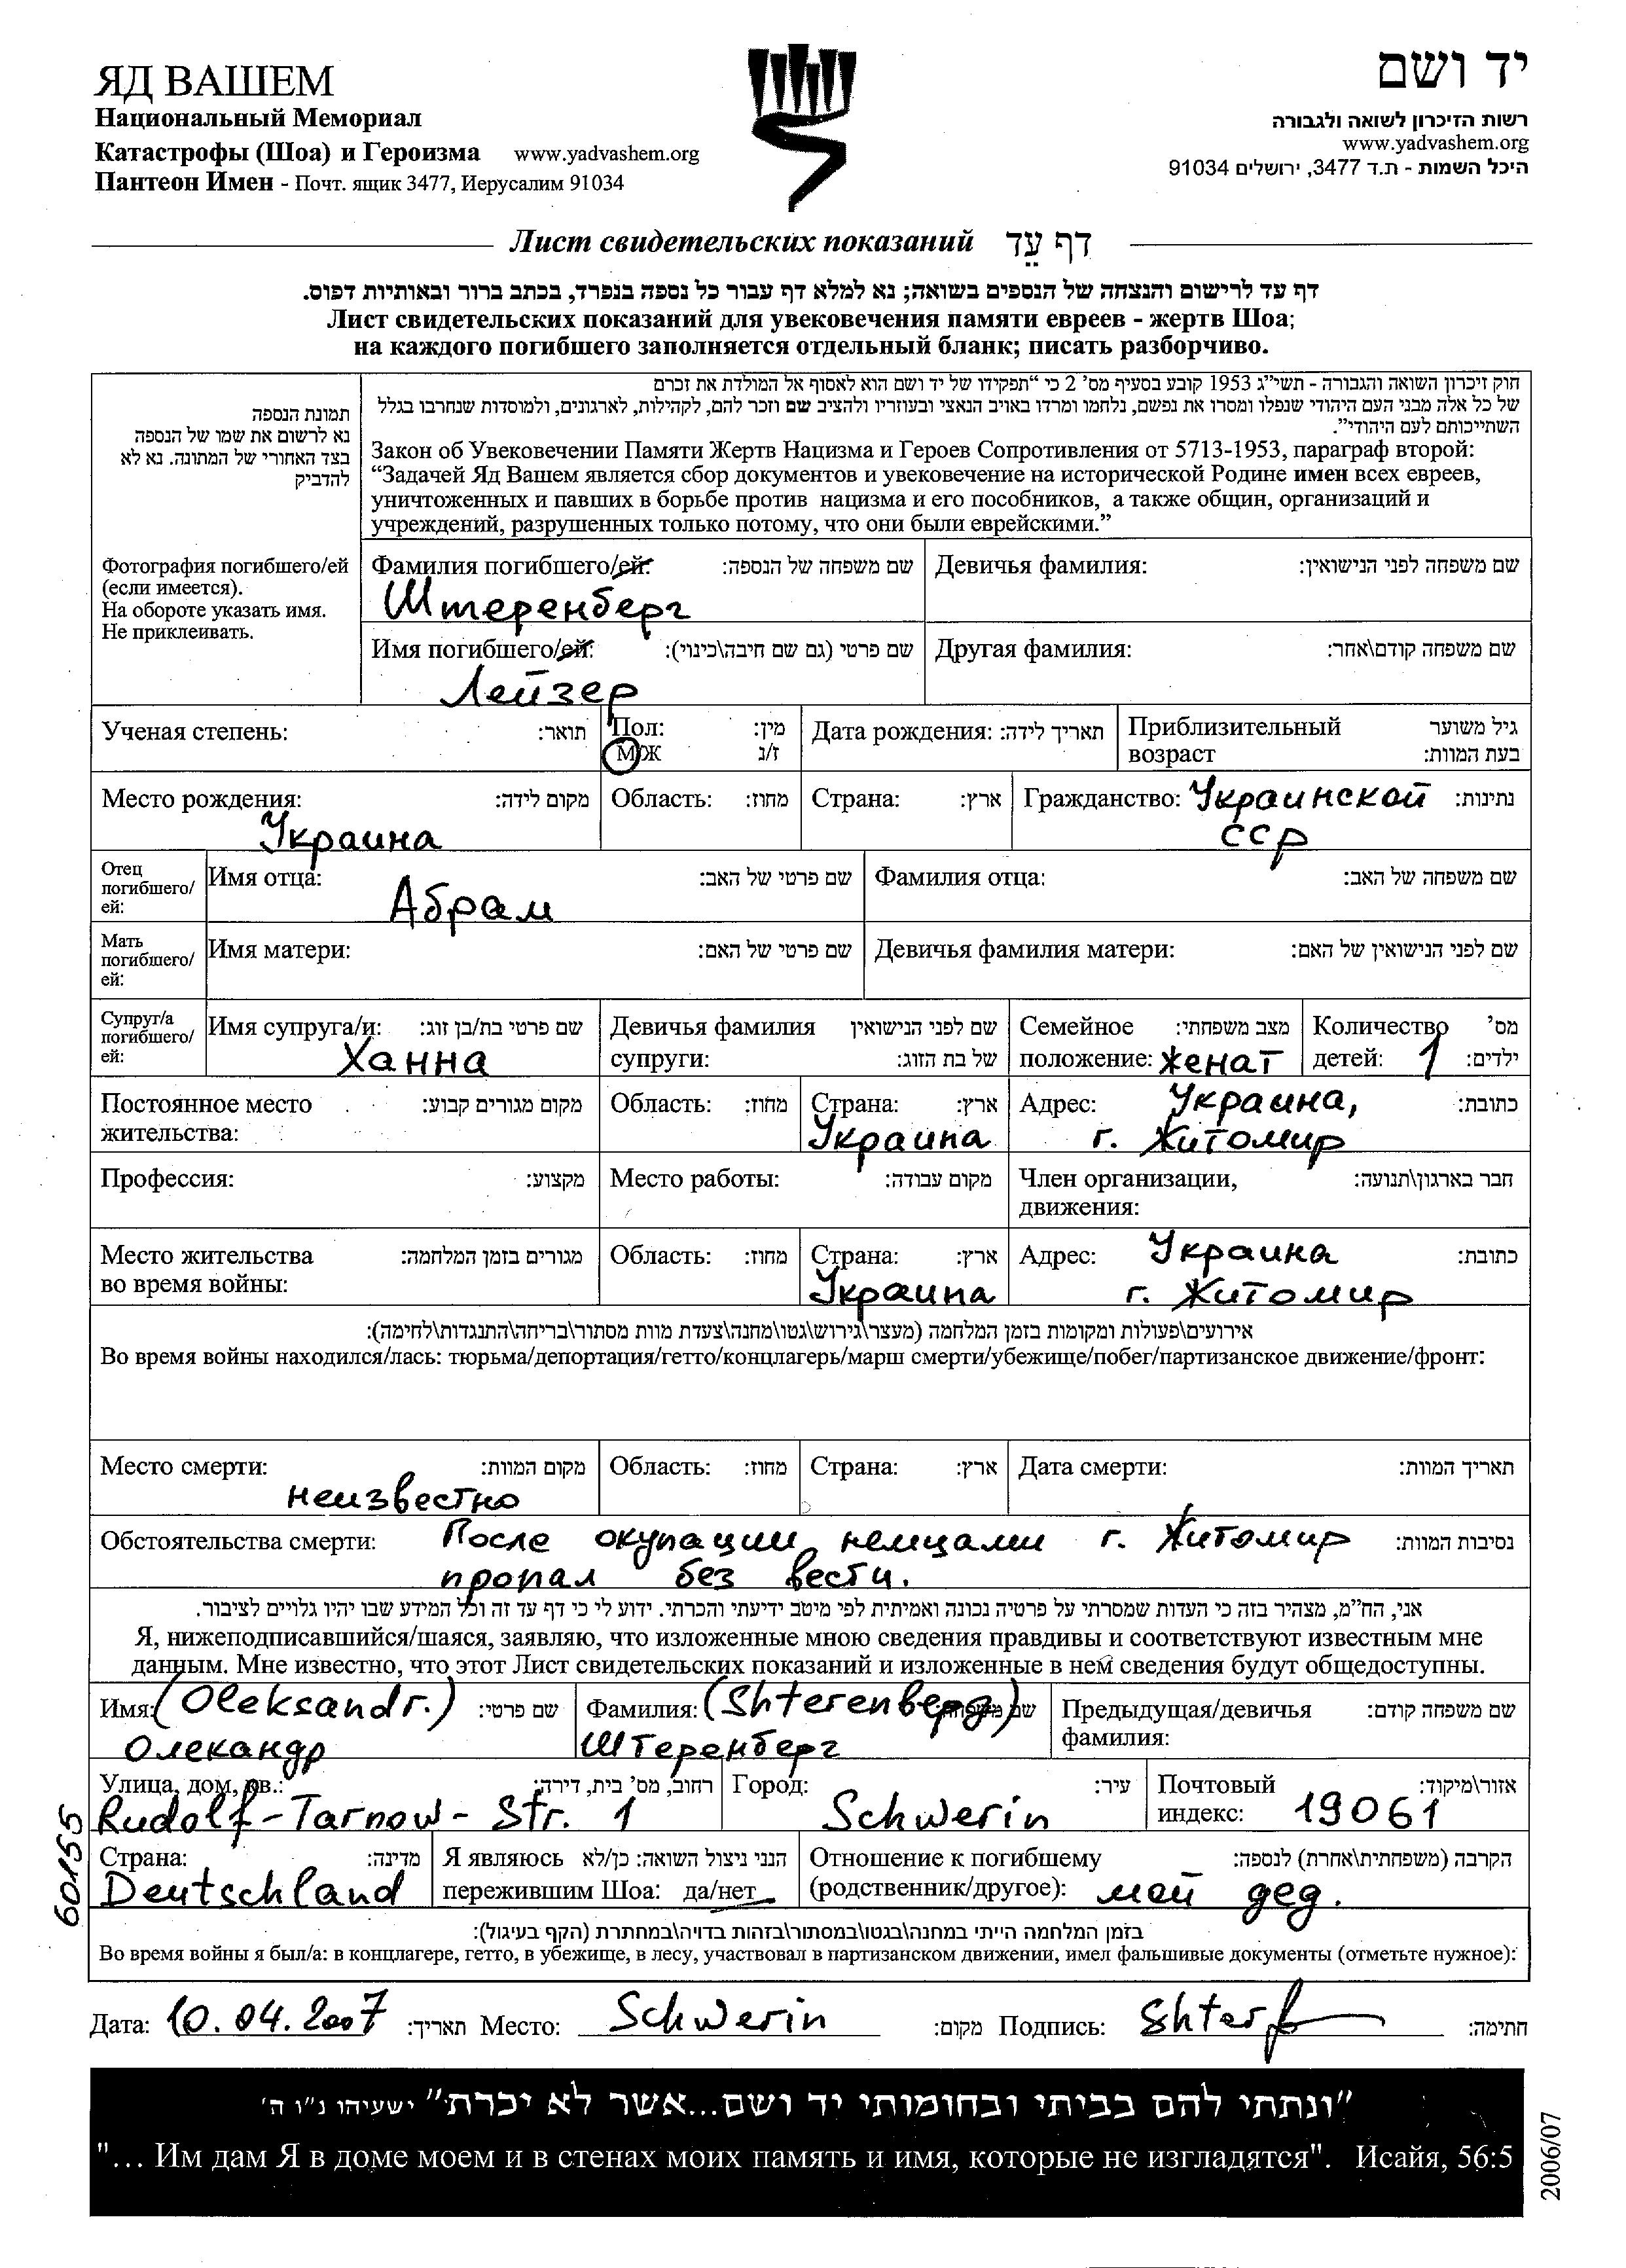 ЯД ВАШЕМ
Национальный Мемориал
Катастрофы (Шоа) и Героизма www.yadvashem.org
Пантеон Имен - Почт. ящик 3477, Иерусалим 91034
יד ושם
רשות הזיכרון לשואה ולגבורה
www.yadvashem.org
היכל השמות - ת.ד 3477, ירושלים 91034
Лист свидетельских показаний דף עֵד
דף עד לרישום והנצחה של הנספים בשואה; נא למלא דף עבור כל נספה בנפרד, בכתב ברור ובאותיות דפוס.
Лист свидетельских показаний для увековечения памяти евреев - жертв Шоа;
на каждого погибшего заполняется отдельный бланк; писать разборчиво.
תמונת הנספה
נא לרשום את שמו של הנספה
בצד האחורי של המתונה. נא לא
להדביק
Фотография погибшего/ей
(если имеется).
На обороте указать имя.
Не приклеивать.
חוק זיכרון השואה והגבורה - תשי"ג 1953 קובע בסעיף מס' 2 כי "תפקידו של יד ושם הוא לאסוף אל המולדת את זכרם
של כל אלה מבני העם היהודי שנפלו ומסרו את נפשם, נלחמו ומרדו באויב הנאצי ובעוזריו ולהציב שם וזכר להם, לקהילות, לארגונים, ולמוסדות שנחרבו בגלל
השתייכותם לעם היהודי".
Закон об Увековечении Памяти Жертв Нацизма и Героев Сопротивления от 5713-1953, параграф второй:
“Задачей Яд Вашем является сбор документов и увековечение на исторической Родине имен всех евреев,
уничтоженных и павших в борьбе против нацизма и его пособников, а также общин, организаций и
учреждений, разрушенных только потому, что они были еврейскими.”
Фамилия погибшего/ей: שם משפחה של הנספה: Девичья фамилия: שם משפחה לפני הנישואין:
Штеренберг
Имя погибшего/ей: שם פרטי (גם שם חיבה\כינוי): Другая фамилия: שם משפחה קודם\אחר:
Лейзер
Ученая степень: תואר: Пол: מין: Дата рождения: תאריך לידה: Приблизительный גיל משוער
М/Ж ז/נ возраст בעת המוות:
Место рождения: מקום לידה: Область: מחוז: Страна: ארץ: Гражданство: Украинской נתינות:
Украина ССР
Отец
погибшего/
ей:
Имя отца: Абрам שם פרטי של האב: Фамилия отца: שם משפחה של האב:
Мать
погибшего/
ей:
Имя матери: שם פרטי של האם: Девичья фамилия матери: שם לפני הנישואין של האם:
Супруг/а
погибшего/
ей:
Имя супруга/и: שם פרטי בת/בן זוג: Девичья фамилия שם לפני הנישואין Семейное מצב משפחתי: Количество מס'
Ханна супруги: של בת הזוג: положение: женат детей: 1 ילדים:
Постоянное место מקום מגורים קבוע: Область: מחוז: Страна: ארץ: Адрес: Украина, כתובת:
жительства: Украина г. Житомир
Профессия: מקצוע: Место работы: מקום עבודה: Член организации, חבר בארגון\תנועה:
движения:
Место жительства מגורים בזמן המלחמה: Область: מחוז: Страна: ארץ: Адрес: Украина כתובת:
во время войны: Украина г. Житомир
אירועים\פעולות ומקומות בזמן המלחמה (מעצר\גירוש\גטו\מחנה\צעדת מוות מסתור\בריחה\התנגדות\לחימה):
Во время войны находился/лась: тюрьма/депортация/гетто/концлагерь/марш смерти/убежище/побег/партизанское движение/фронт:
Место смерти: מקום המוות: Область: מחוז: Страна: ארץ: Дата смерти: תאריך המוות:
неизвестно
Обстоятельства смерти: После окупации немцами г. Житомир נסיבות המוות:
пропал без вести.
אני, הח"מ, מצהיר בזה כי העדות שמסרתי על פרטיה נכונה ואמיתית לפי מיטב ידיעתי והכרתי. ידוע לי כי דף עד זה וכל המידע שבו יהיו גלויים לציבור.
Я, нижеподписавшийся/шаяся, заявляю, что изложенные мною сведения правдивы и соответствуют известным мне
данным. Мне известно, что этот Лист свидетельских показаний и изложенные в нем сведения будут общедоступны.
Имя: (Oleksandr.) שם פרטי: Фамилия: (Shterenberg) שם משפחה: Предыдущая/девичья שם משפחה קודם:
Олександр Штеренберг фамилия:
Улица, дом, кв.: רחוב, מס' בית, דירה: Город: עיר: Почтовый אזור\מיקוד:
Rudolf-Tarnow-Str. 1 Schwerin индекс: 19061
Страна: מדינה: Я являюсь הנני ניצול השואה: כן/לא Отношение к погибшему הקרבה (משפחתית\אחרת) לנספה:
Deutschland пережившим Шоа: да/нет (родственник/другое): мой дед.
בזמן המלחמה הייתי במחנה\בגטו\במסתור\בזהות בדויה\במחתרת (הקף בעיגול):
Во время войны я был/а: в концлагере, гетто, в убежище, в лесу, участвовал в партизанском движении, имел фальшивые документы (отметьте нужное):
60155
Дата: 10.04.2007 תאריך: Место: Schwerin מקום: Подпись: חתימה:
"ונתתי להם בביתי ובחומותי יד ושם...אשר לא יכרת" ישעיהו נ"ו ה'
"... Им дам Я в доме моем и в стенах моих память и имя, которые не изгладятся". Исайя, 56:5
2006/07